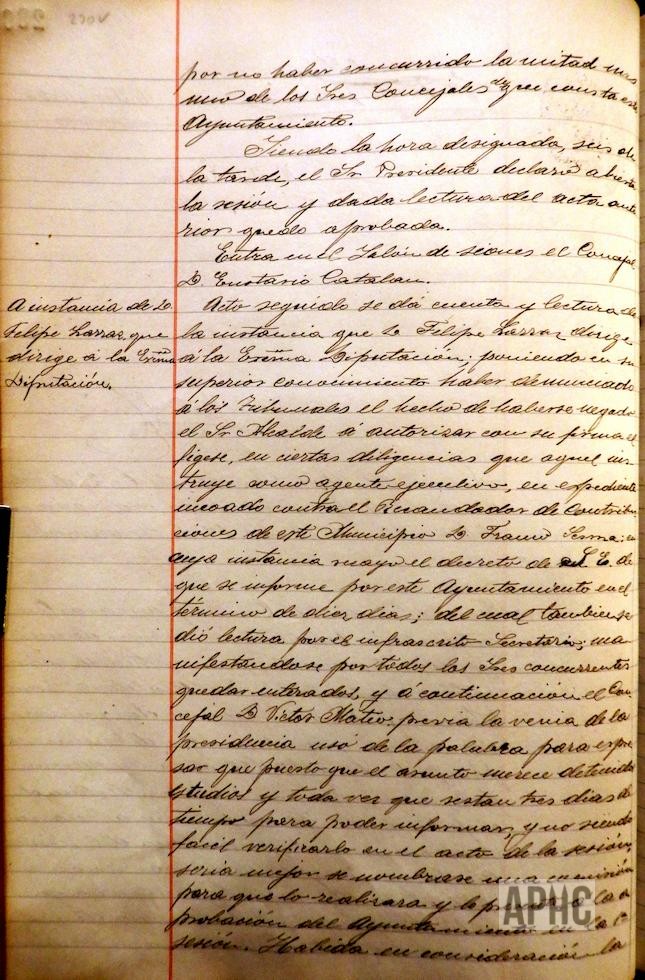 230v
por no haber concurrido la mitad mas
uno de los Sres Concejales de que consta este
Ayuntamiento.
Siendo la hora designada, seis de
la tarde, el Sr Presidente declaró abierta
la sesión y dada lectura del acta ante
rior quedó aprobada.
Entra en el Salón de siones el Concejal
D Eustasio Catalan.
A instancia de D
Felipe Larraz que
dirige á la Exma
Diputación.
Acto seguido se dá cuenta y lectura de
la instancia que D Felipe Larraz dirige
á la Exma Diputación; poniendo en su
superior conocimiento haber denunciado
á los Tribunales el hecho de haberse negado
el Sr Alcalde á autorizar con su firma el
fígese, en ciertas diligencias que aquel ins
truye como agente ejecutivo, en expediente
incoado contra el Recaudador de Contribu
ciones de este Municipio D Franco Serma; en
cuya instancia recayó el decreto de S. E. de
que se informe por este Ayuntamiento en el
término de diez dias; del cual tambien se
dió lectura por el infrascrito Secretario; ma
nifestándose por todos los Sres concurrentes
quedar enterados, y á continuación el Con
cejal D Victor Mateo, previa la venia de la
presidencia usó de la palabra para expre
sar que puesto que el asunto merece detenidos
estudios y toda vez que restan tres dias de
tiempo para poder informar, y no siendo
facil verificarlo en el acto de la sesión,
seria mejor se nombrase una comisión
para que lo realizara y le la a
probación del Ayuntamiento en la
sesión. Habida en consideración la
APHC